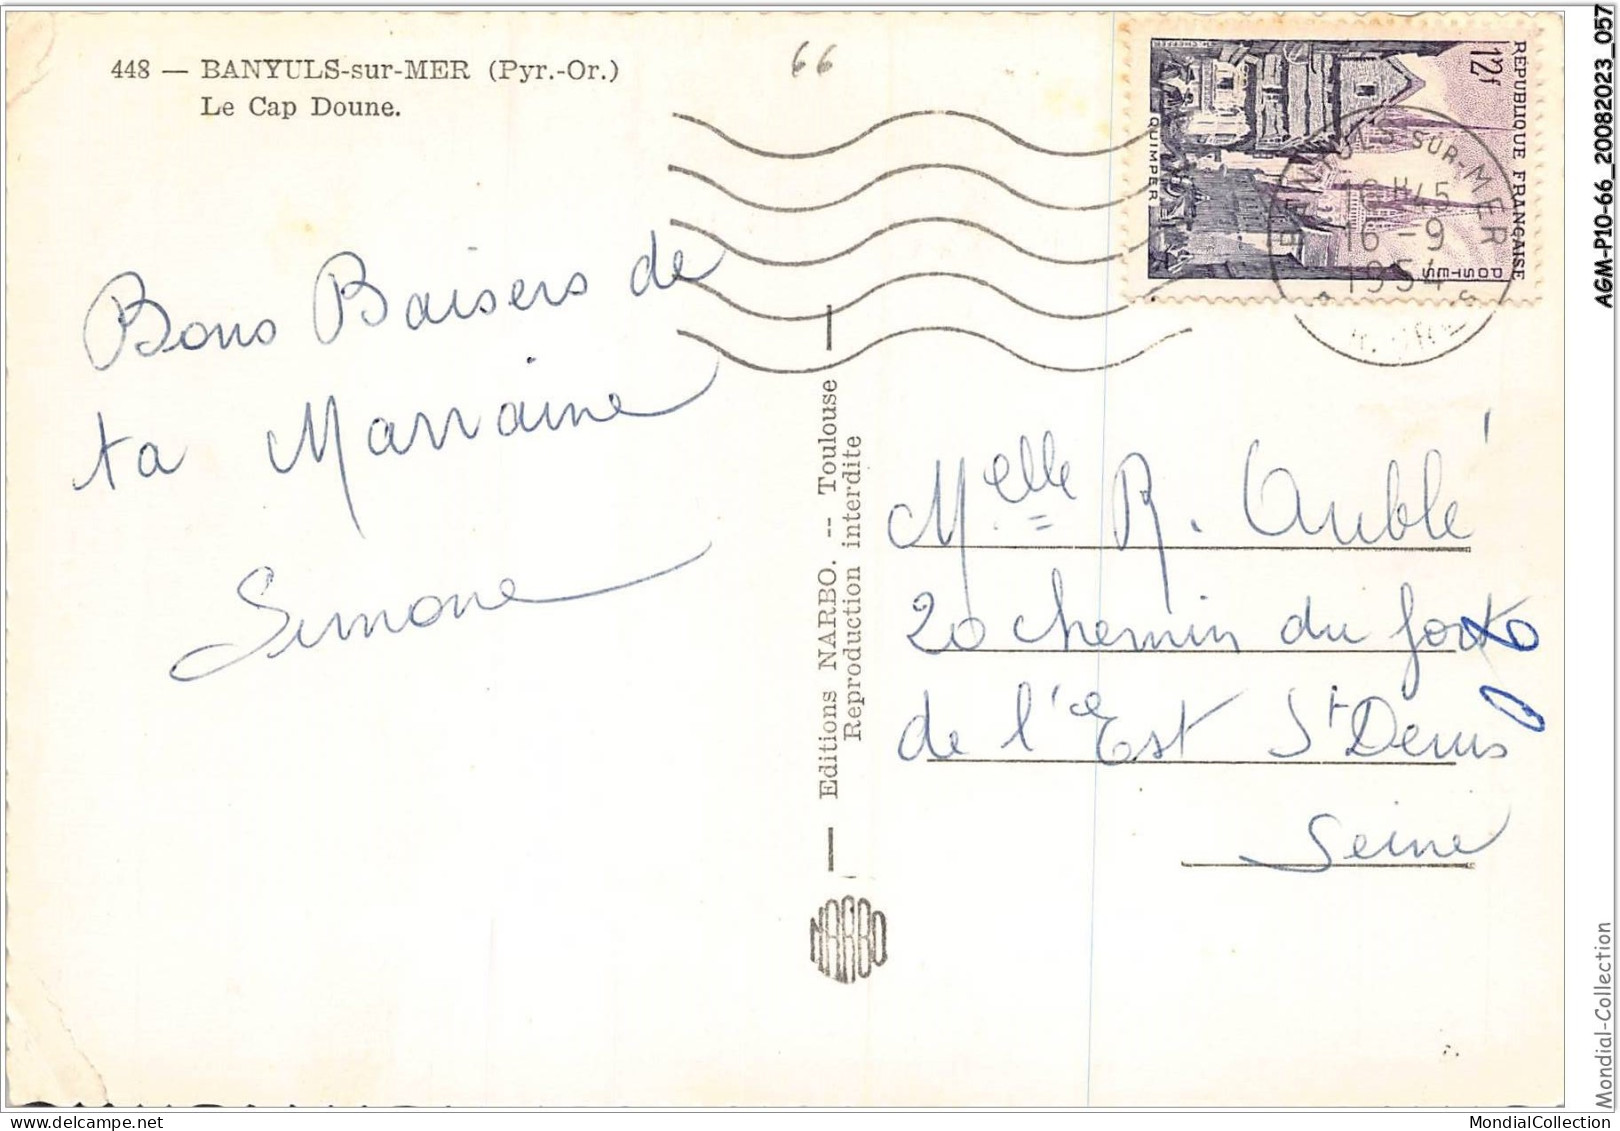 448 — BANYULS-sur-MER (Pyr.-Or.)
Le Cap Doune.
66
Bons Baisers de
ta Marraine
Simone
RÉPUBLIQUE FRANÇAISE
12f
POSTES
QUIMPER
BANYULS-SUR-MER
16H45
16 -9
1954
Editions NARBO. -- Toulouse
Reproduction interdite
NARBO
Melle R. Aublé
20 chemin du fort
de l'Est St Denis
Seine
AGM-P10-66_20082023_057
Mondial-Collection
MondialCollection